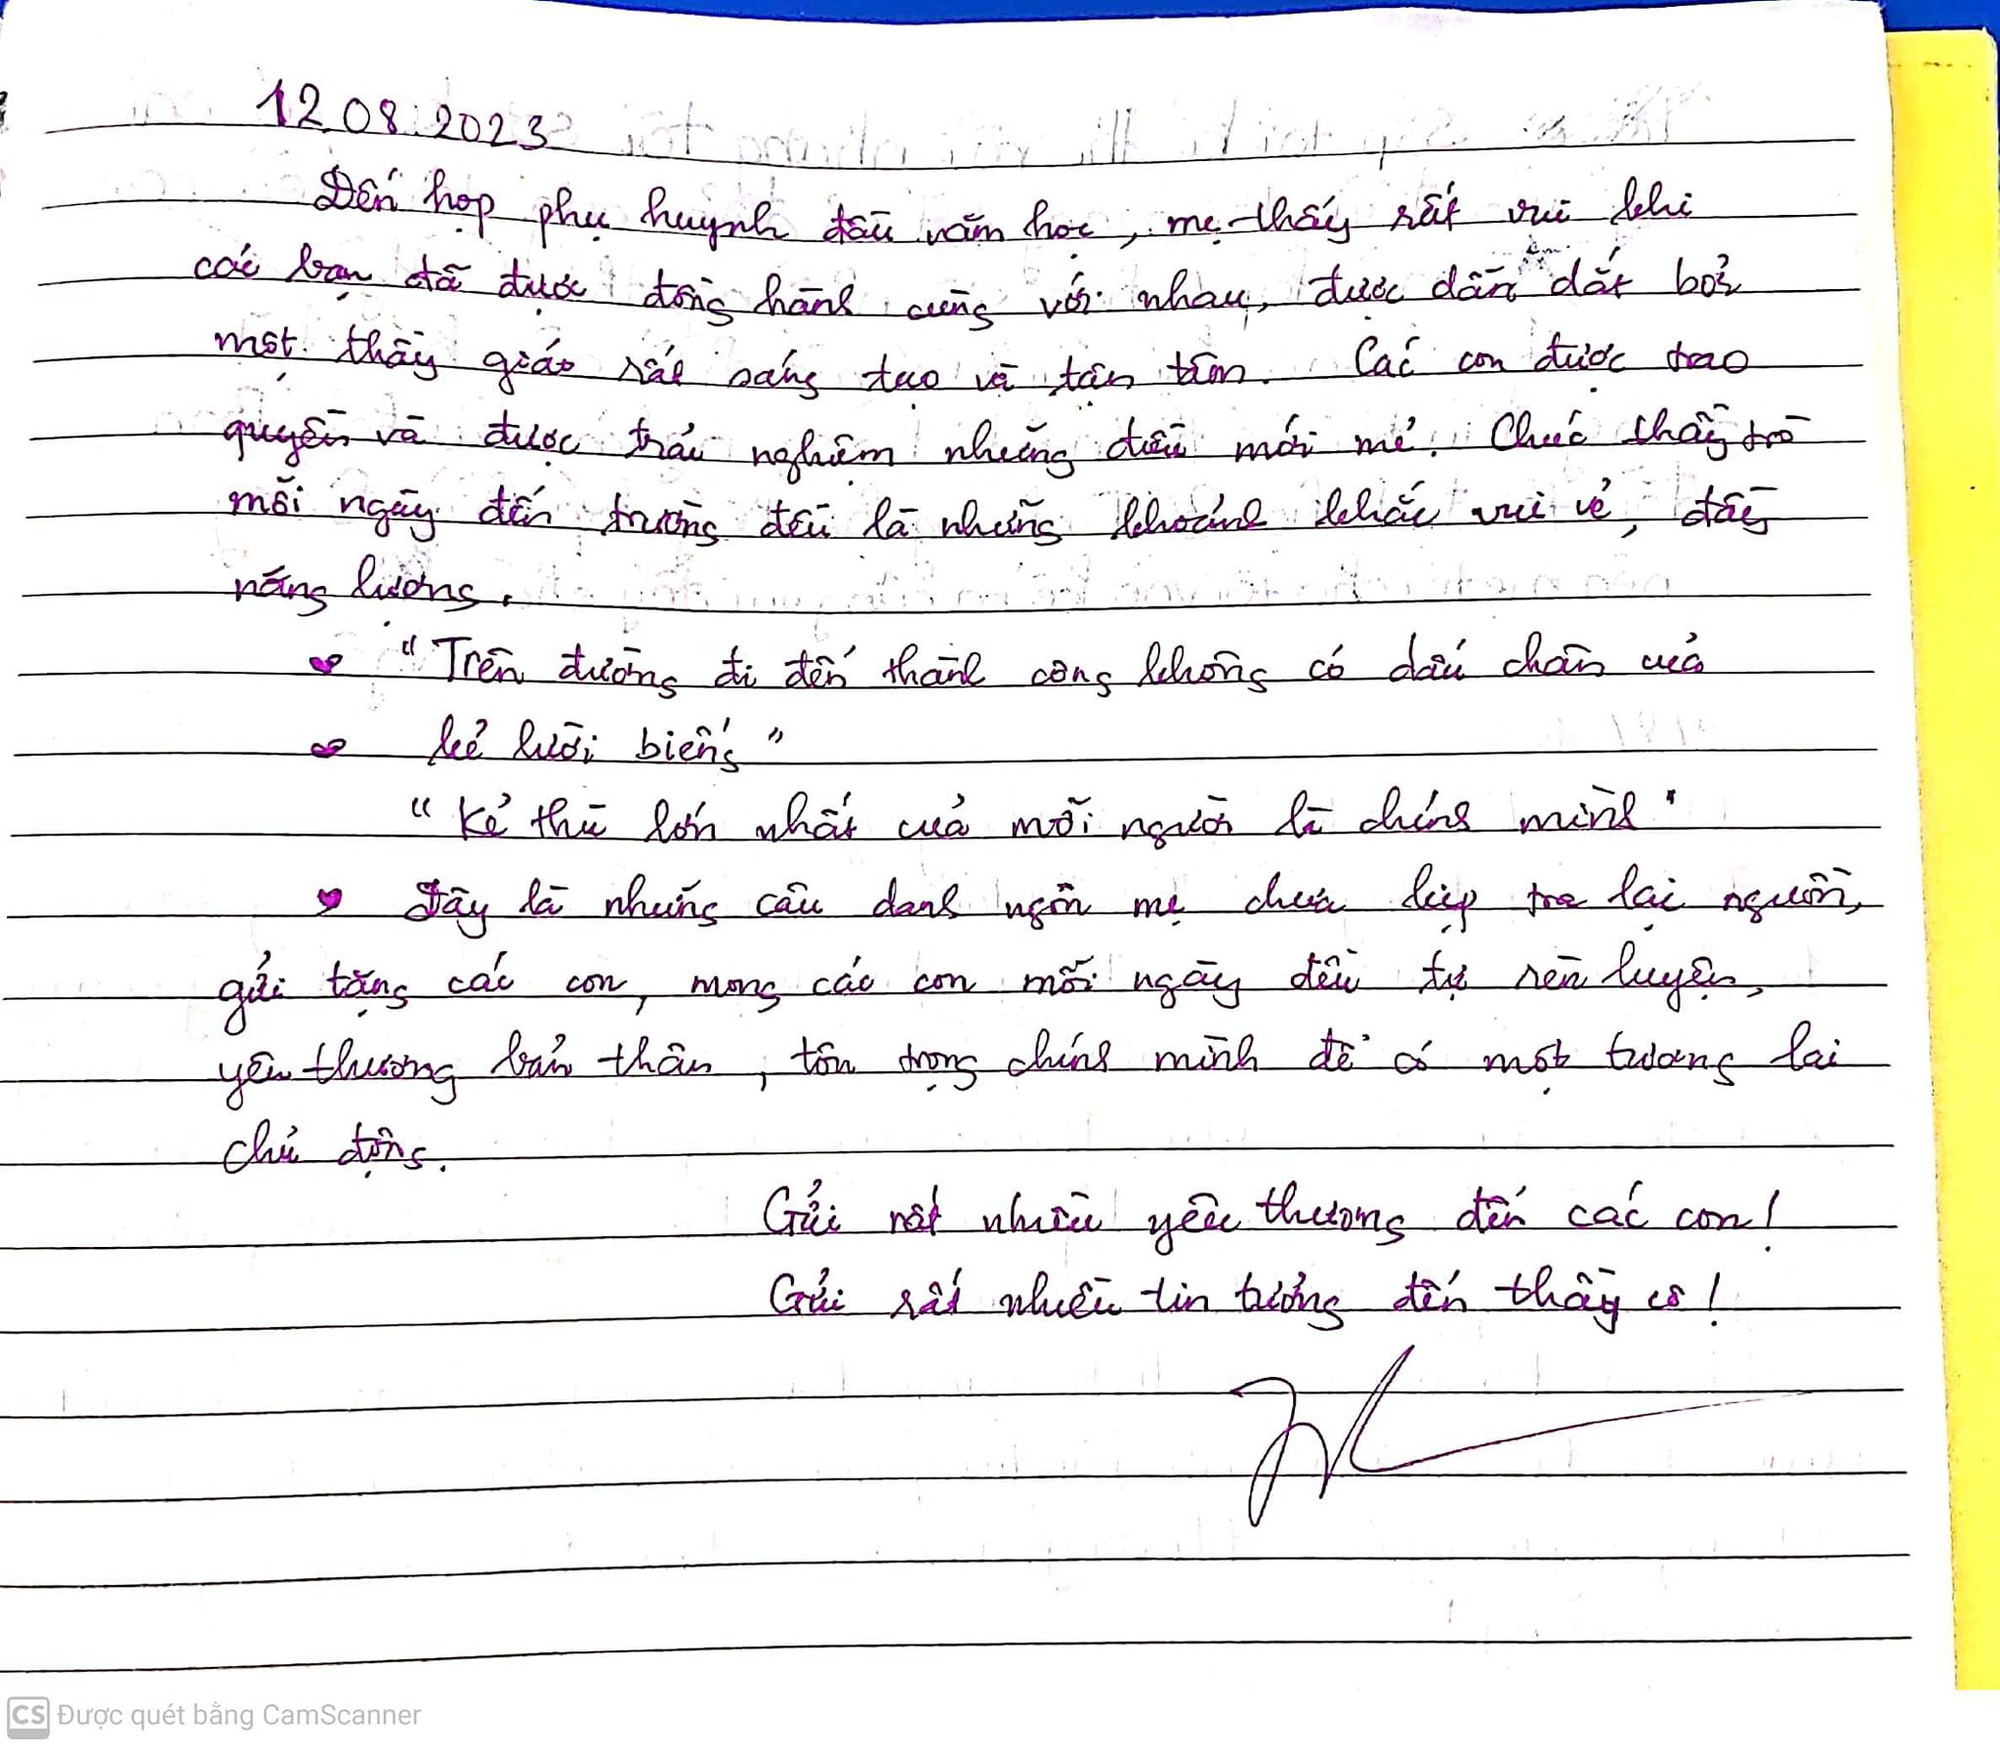 12.08.2023
Đến họp phụ huynh đầu năm học, mẹ thấy rất vui khi
các bạn đã được đồng hành cùng với nhau, được dẫn dắt bởi
một thầy giáo rất sáng tạo và tận tâm. Các con được trao
quyền và được trải nghiệm những điều mới mẻ. Chúc thầy trò
mỗi ngày đến trường đều là những khoảnh khắc vui vẻ, đầy
năng lượng.
"Trên đường đi đến thành công không có dấu chân của
kẻ lười biếng"
"Kẻ thù lớn nhất của mỗi người là chính mình"
Đây là những câu danh ngôn mẹ chưa kịp tra lại nguồn,
gửi tặng các con, mong các con mỗi ngày đều tự rèn luyện,
yêu thương bản thân, tôn trọng chính mình để có một tương lai
chủ động.
Gửi rất nhiều yêu thương đến các con!
Gửi rất nhiều tin tưởng đến thầy cô!
CS Được quét bằng CamScanner